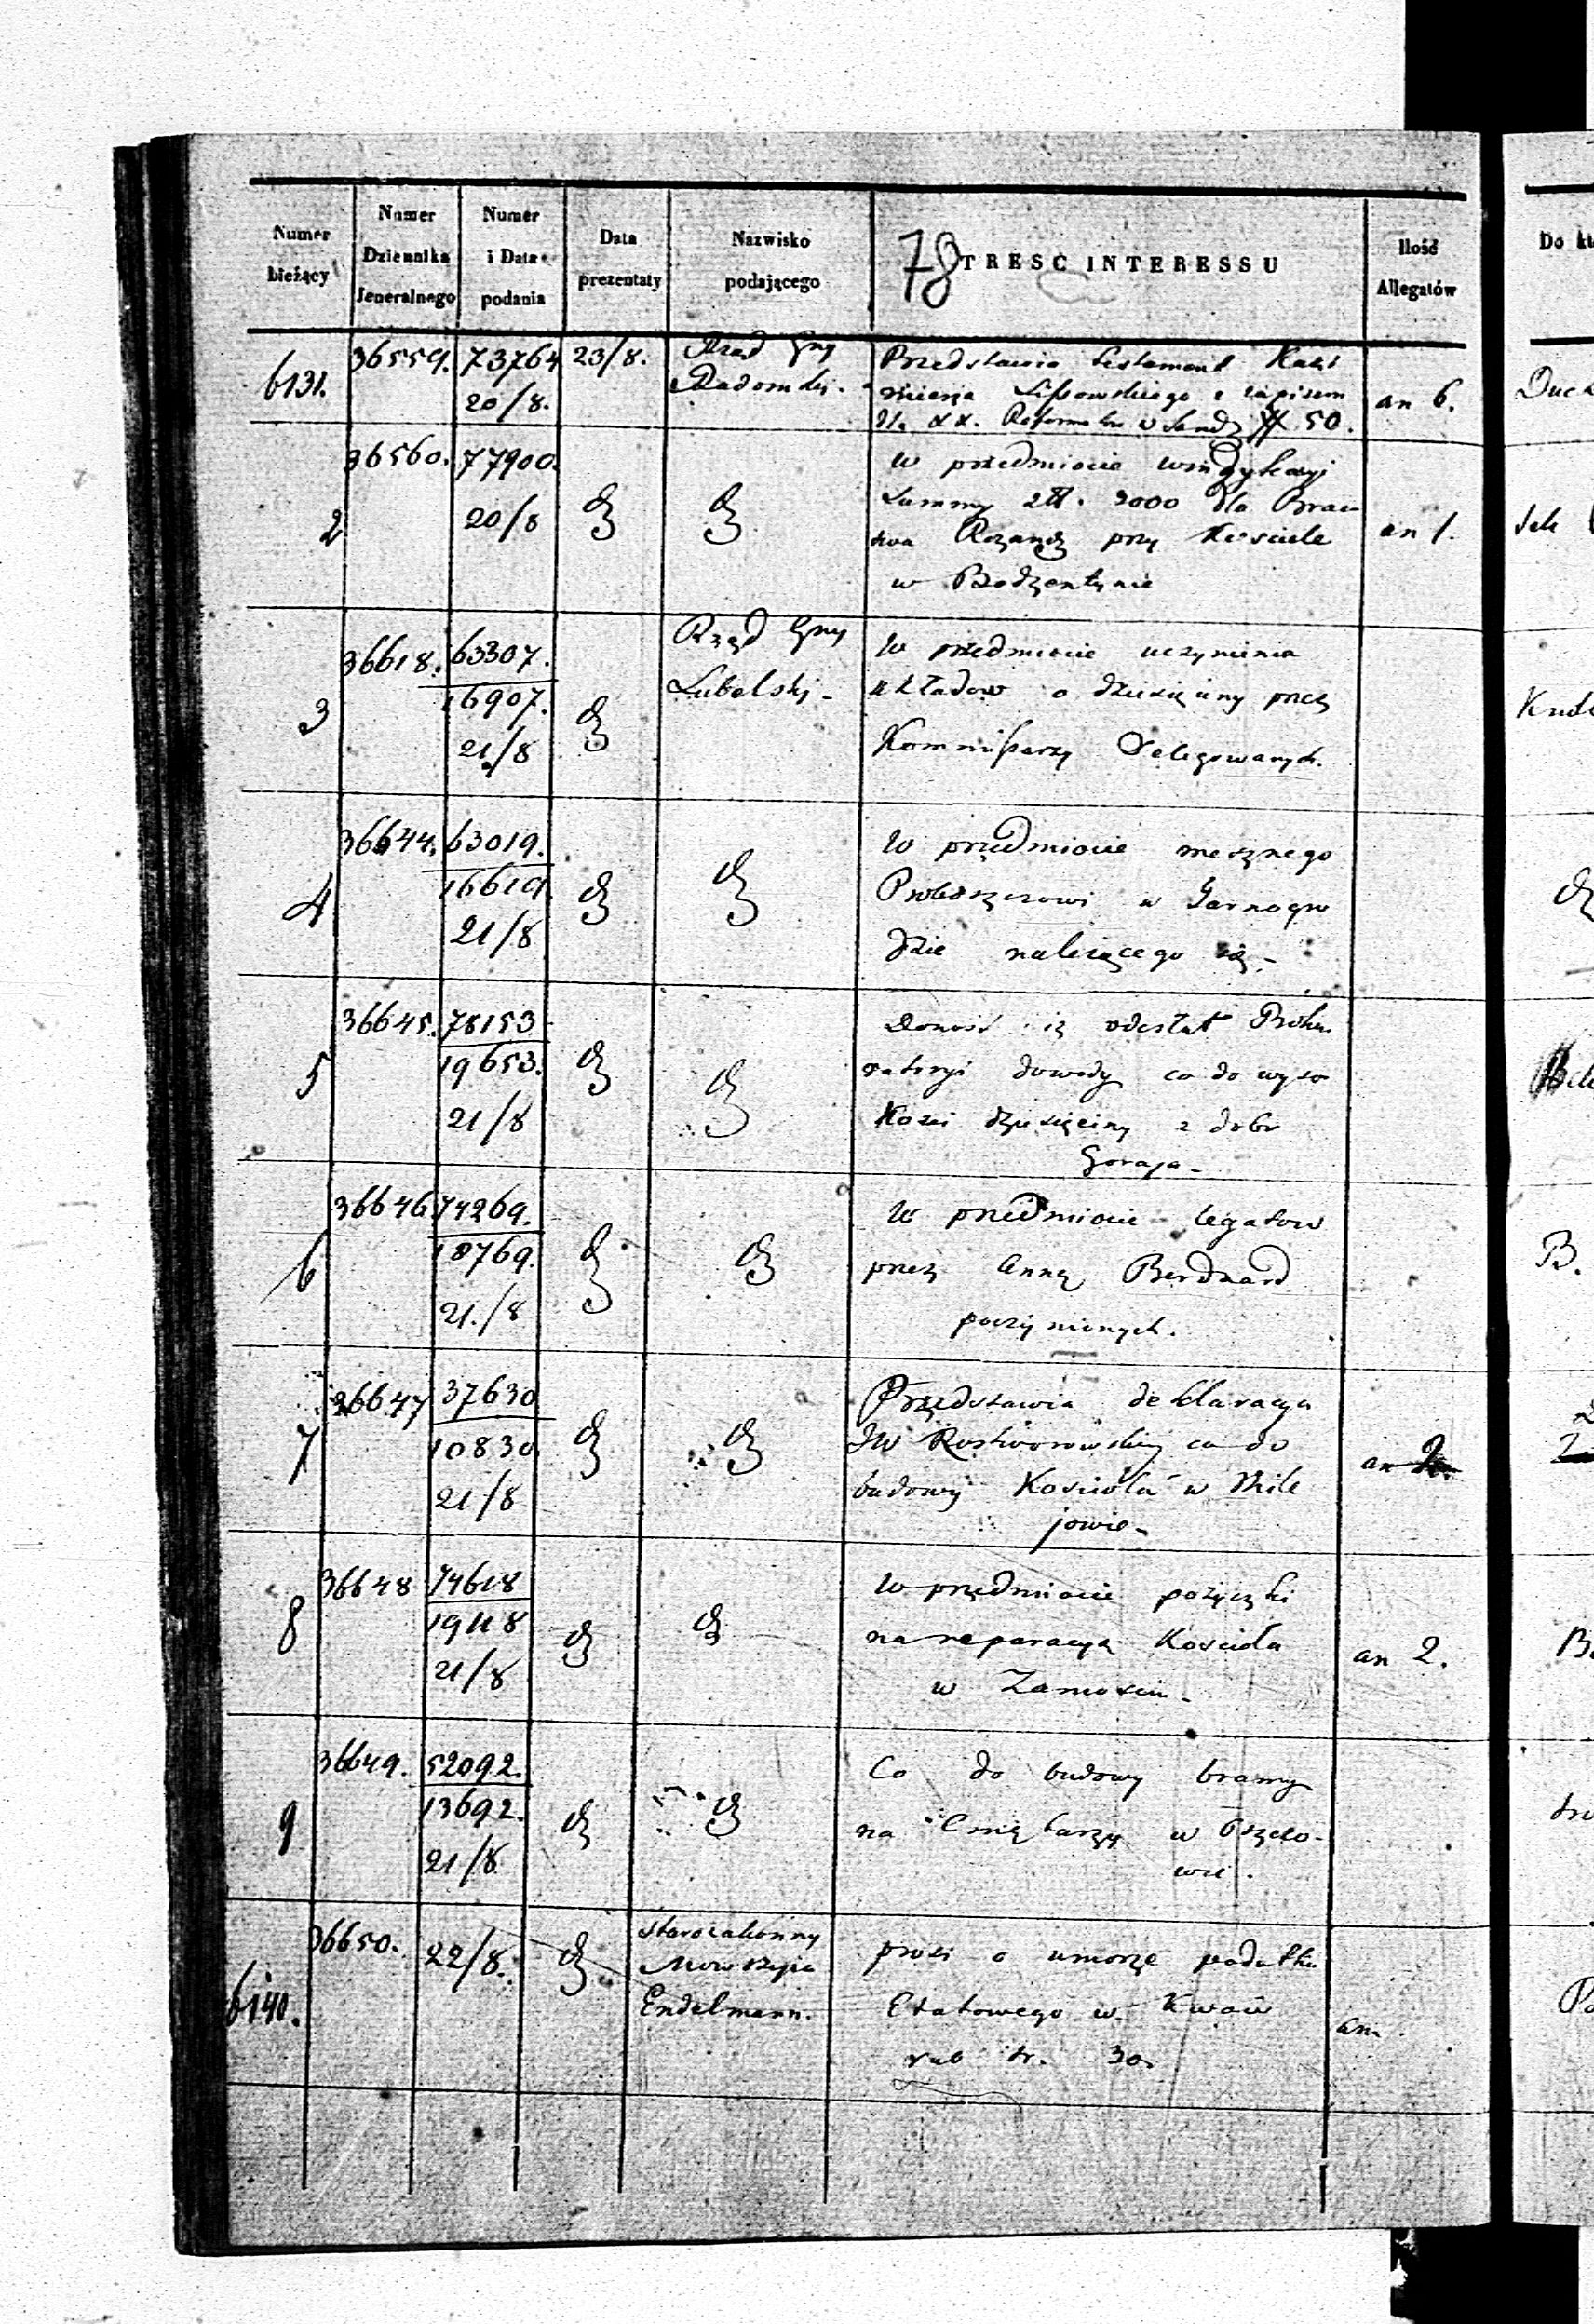 Numer bieżący
Numer Dziennika Jeneralnego
Numer i Data podania
Data prezentaty
Nazwisko podającego
78 TRESC INTERESSU
Ilość Allegatów
Do
6131. 36559. 73764 20/8. 23/8. Rząd Gny Radomski.
Przedstawia testament Kazi
mierza Lissowskiego z zapisem
dla XX. Reformatów w Sand 50.
an 6.
2 36560. 77900. 20/8
W przedmiocie windykacyi
Summy zł. 3000 dla Brac
twa Rożanc przy Kościele
w Bodzentynie
an 1.
3 36618. 63307. 16907. 21/8 Rząd Gny Lubelski
W przedmiocie uczynienia
układow o dziesięciny przez
Kommissarzy Delegowanych.
4 36644. 63019. 16619. 21/8
W przedmiocie mesznego
Proboszczowi w Tarnogro
dzie należącego się
5 36645. 78153 19653. 21/8
Donosi iż odesłał Proku
ratoryi dowody co do wyso
kości dziesięciny z dobr
Goraja
6 36646 74269. 18769. 21./8
W przedmiocie legatow
przez Annę Berdnard
poczynionych.
7 36647 37630 10830 21/8
Przedstawia deklaracya
JW Rostworowskiej co do
budowy Kościoła w Mile
jowie
an 2.
8 36648 74618 19118 21/8
W przedmiocie pożyczki
na reparacyą Kościoła
w Zamościu
an 2.
B
9 36649. 52092. 13692. 21/8
Co do budowy bramy
na Cmętarzu w
6140. 36650. 22/8. Starozakonny
Endelmann.
prosi o umorze podatku
Etatowego w Kwocie
rub sr. 30.
an.